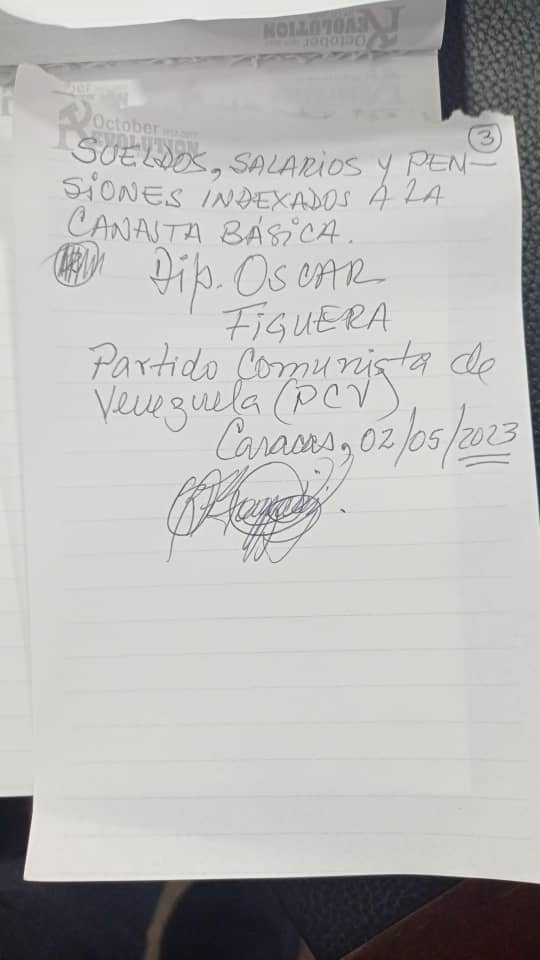 REVOLUTION
October
3
October
REVOLUTION
SUELDOS, SALARIOS Y PEN-
SIONES INDEXADOS A LA
CANASTA BÁSICA.
Dip. OSCAR
FIGUERA
Partido Comunista de
Venezuela (PCV)
Caracas, 02/05/2023